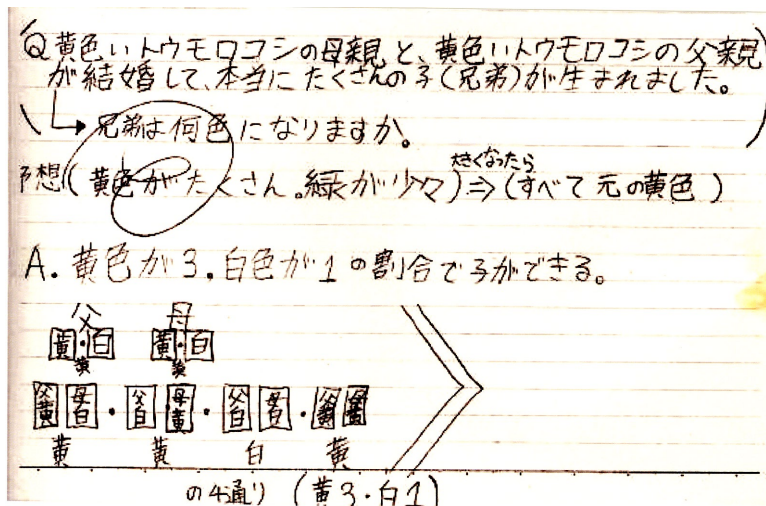 Q 黄色いトウモロコシの母親と、黄色いトウモロコシの父親
が結婚して、本当にたくさんの子(兄弟)が生まれました。
→兄弟は何色になりますか。
大きくなったら
予想(黄色がたくさん。緑が少々)⇒(すべて元の黄色)
A. 黄色が3.白色が1の割合で子ができる。
父 母
黄・白 黄・白
黄 黄
父黄 母白・父白 母黄・父白 母白・父黄 母黄
黄 黄 白 黄
の4通り (黄3・白1)